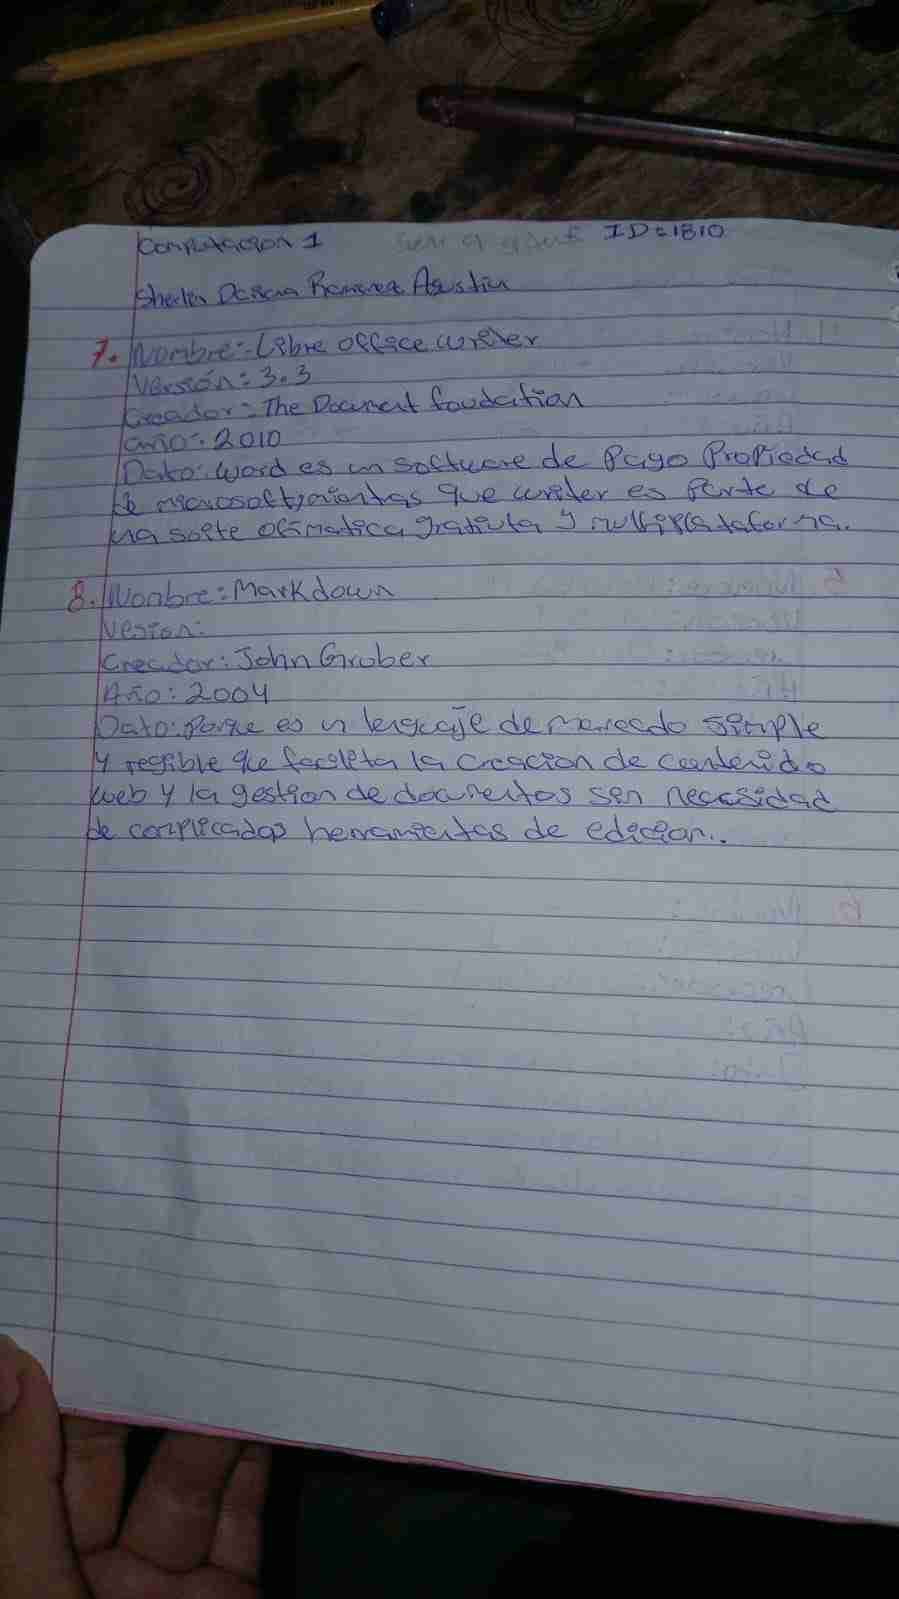 Computacion 1 ID=1810
Ramirez Agustin
7. Nombre: Libre office writer
Versión: 3.3
Creador: The Document foundation
año: 2010
Dato: word es un software de Pago Propiedad
de microsoft, mientas que writer es Parte de
una soite ofimatica gratuita y multiplataforma.
8. Nombre: Markdown
Vesion:
Creador: John Gruber
Año: 2004
Dato: Porque es un lenguaje de marcado simple
y legible que facilita la creacion de contenido
web y la gestion de documentos sin necesidad
de complicadas herramientas de edicion.